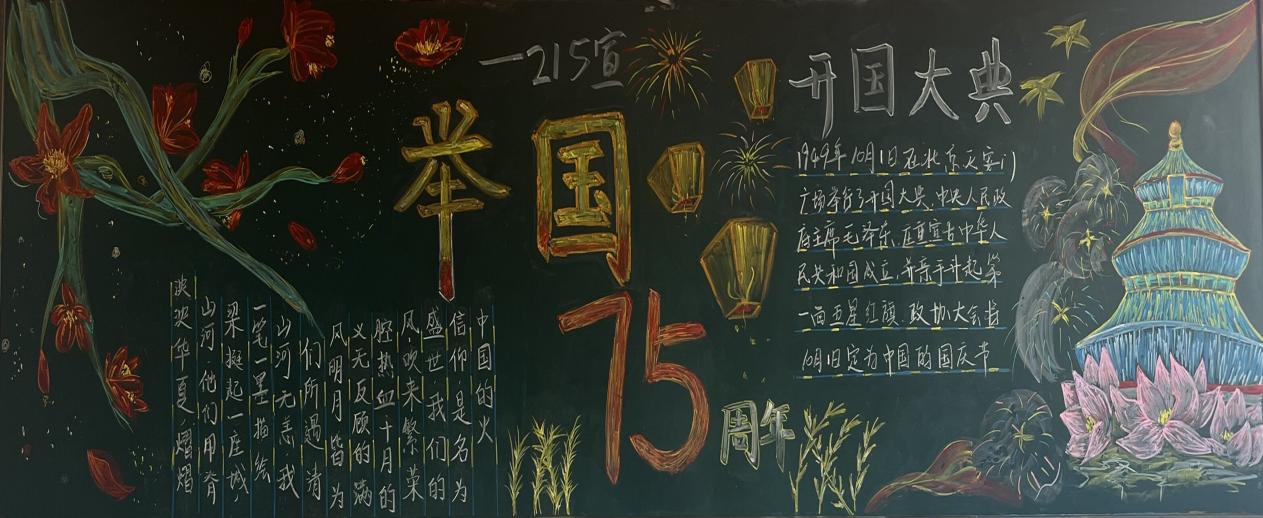 一215宣
举国
75
周年
泱泱华夏,熠熠
山河,他们用脊
梁挺起一座城,
一笔一墨描绘
山河无恙,我
们所遇清
风明月,皆为
义无反顾的满
腔热血,十月的
风,吹来繁荣
盛世,我们的
信仰,是名为
中国的火
开国大典
1949年10月1日在北京天安门
广场举行了开国大典,中央人民政
府主席毛泽东,庄重宣告中华人
民共和国成立,并亲手升起第
一面五星红旗,政协大会将
10月1日定为中国的国庆节